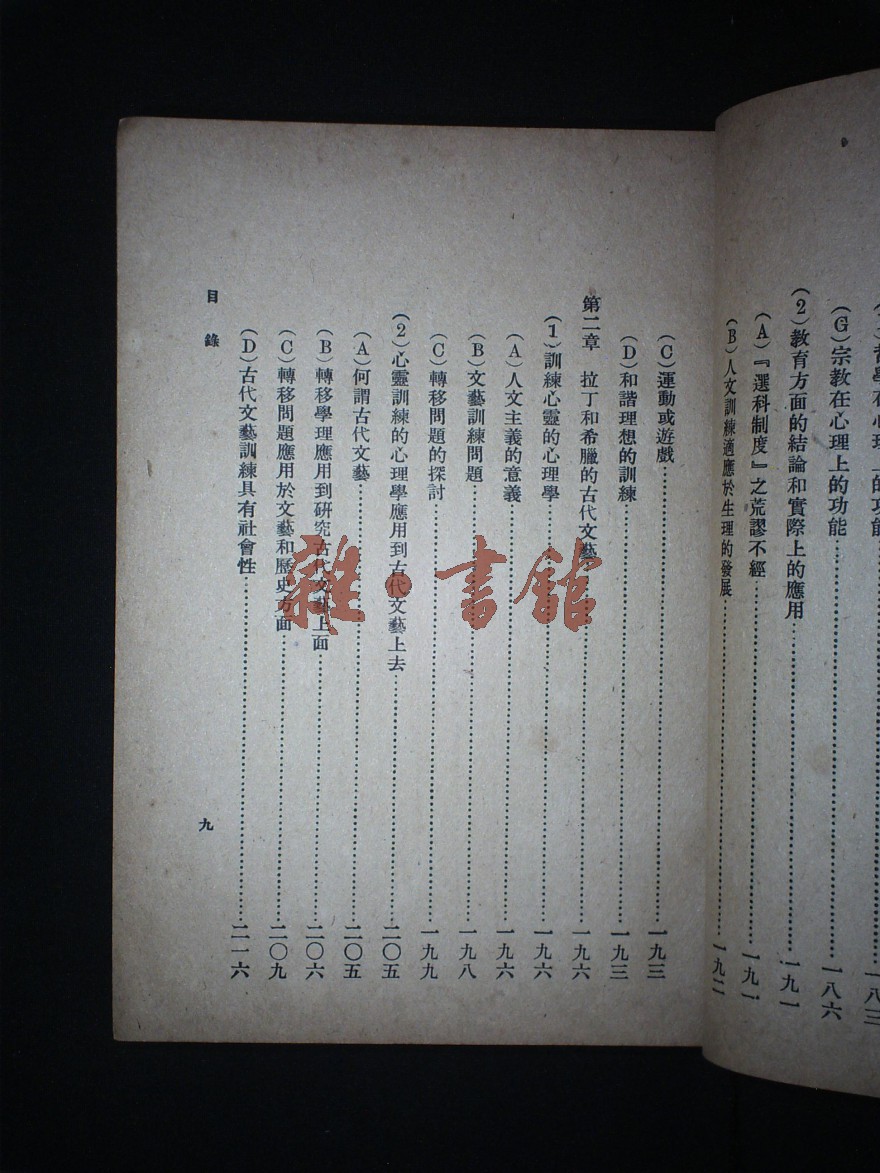 哲學在心理上的功能……一八三
(G)宗教在心理上的功能……一八六
(2)教育方面的結論和實際上的應用……一九一
(A)『選科制度』之荒謬不經……一九一
(B)人文訓練適應於生理的發展……一九二
(C)運動或遊戲……一九三
(D)和諧理想的訓練……一九三
第二章 拉丁和希臘的古代文藝……一九六
(1)訓練心靈的心理學……一九六
(A)人文主義的意義……一九六
(B)文藝訓練問題……一九八
(C)轉移問題的探討……一九九
(2)心靈訓練的心理學應用到古代文藝上去……二〇五
(A)何謂古代文藝……二〇五
(B)轉移學理應用到研究古代文藝上面……二〇六
(C)轉移問題應用於文藝和歷史方面……二〇九
(D)古代文藝訓練具有社會性……二一六
目錄
九
雜·書館